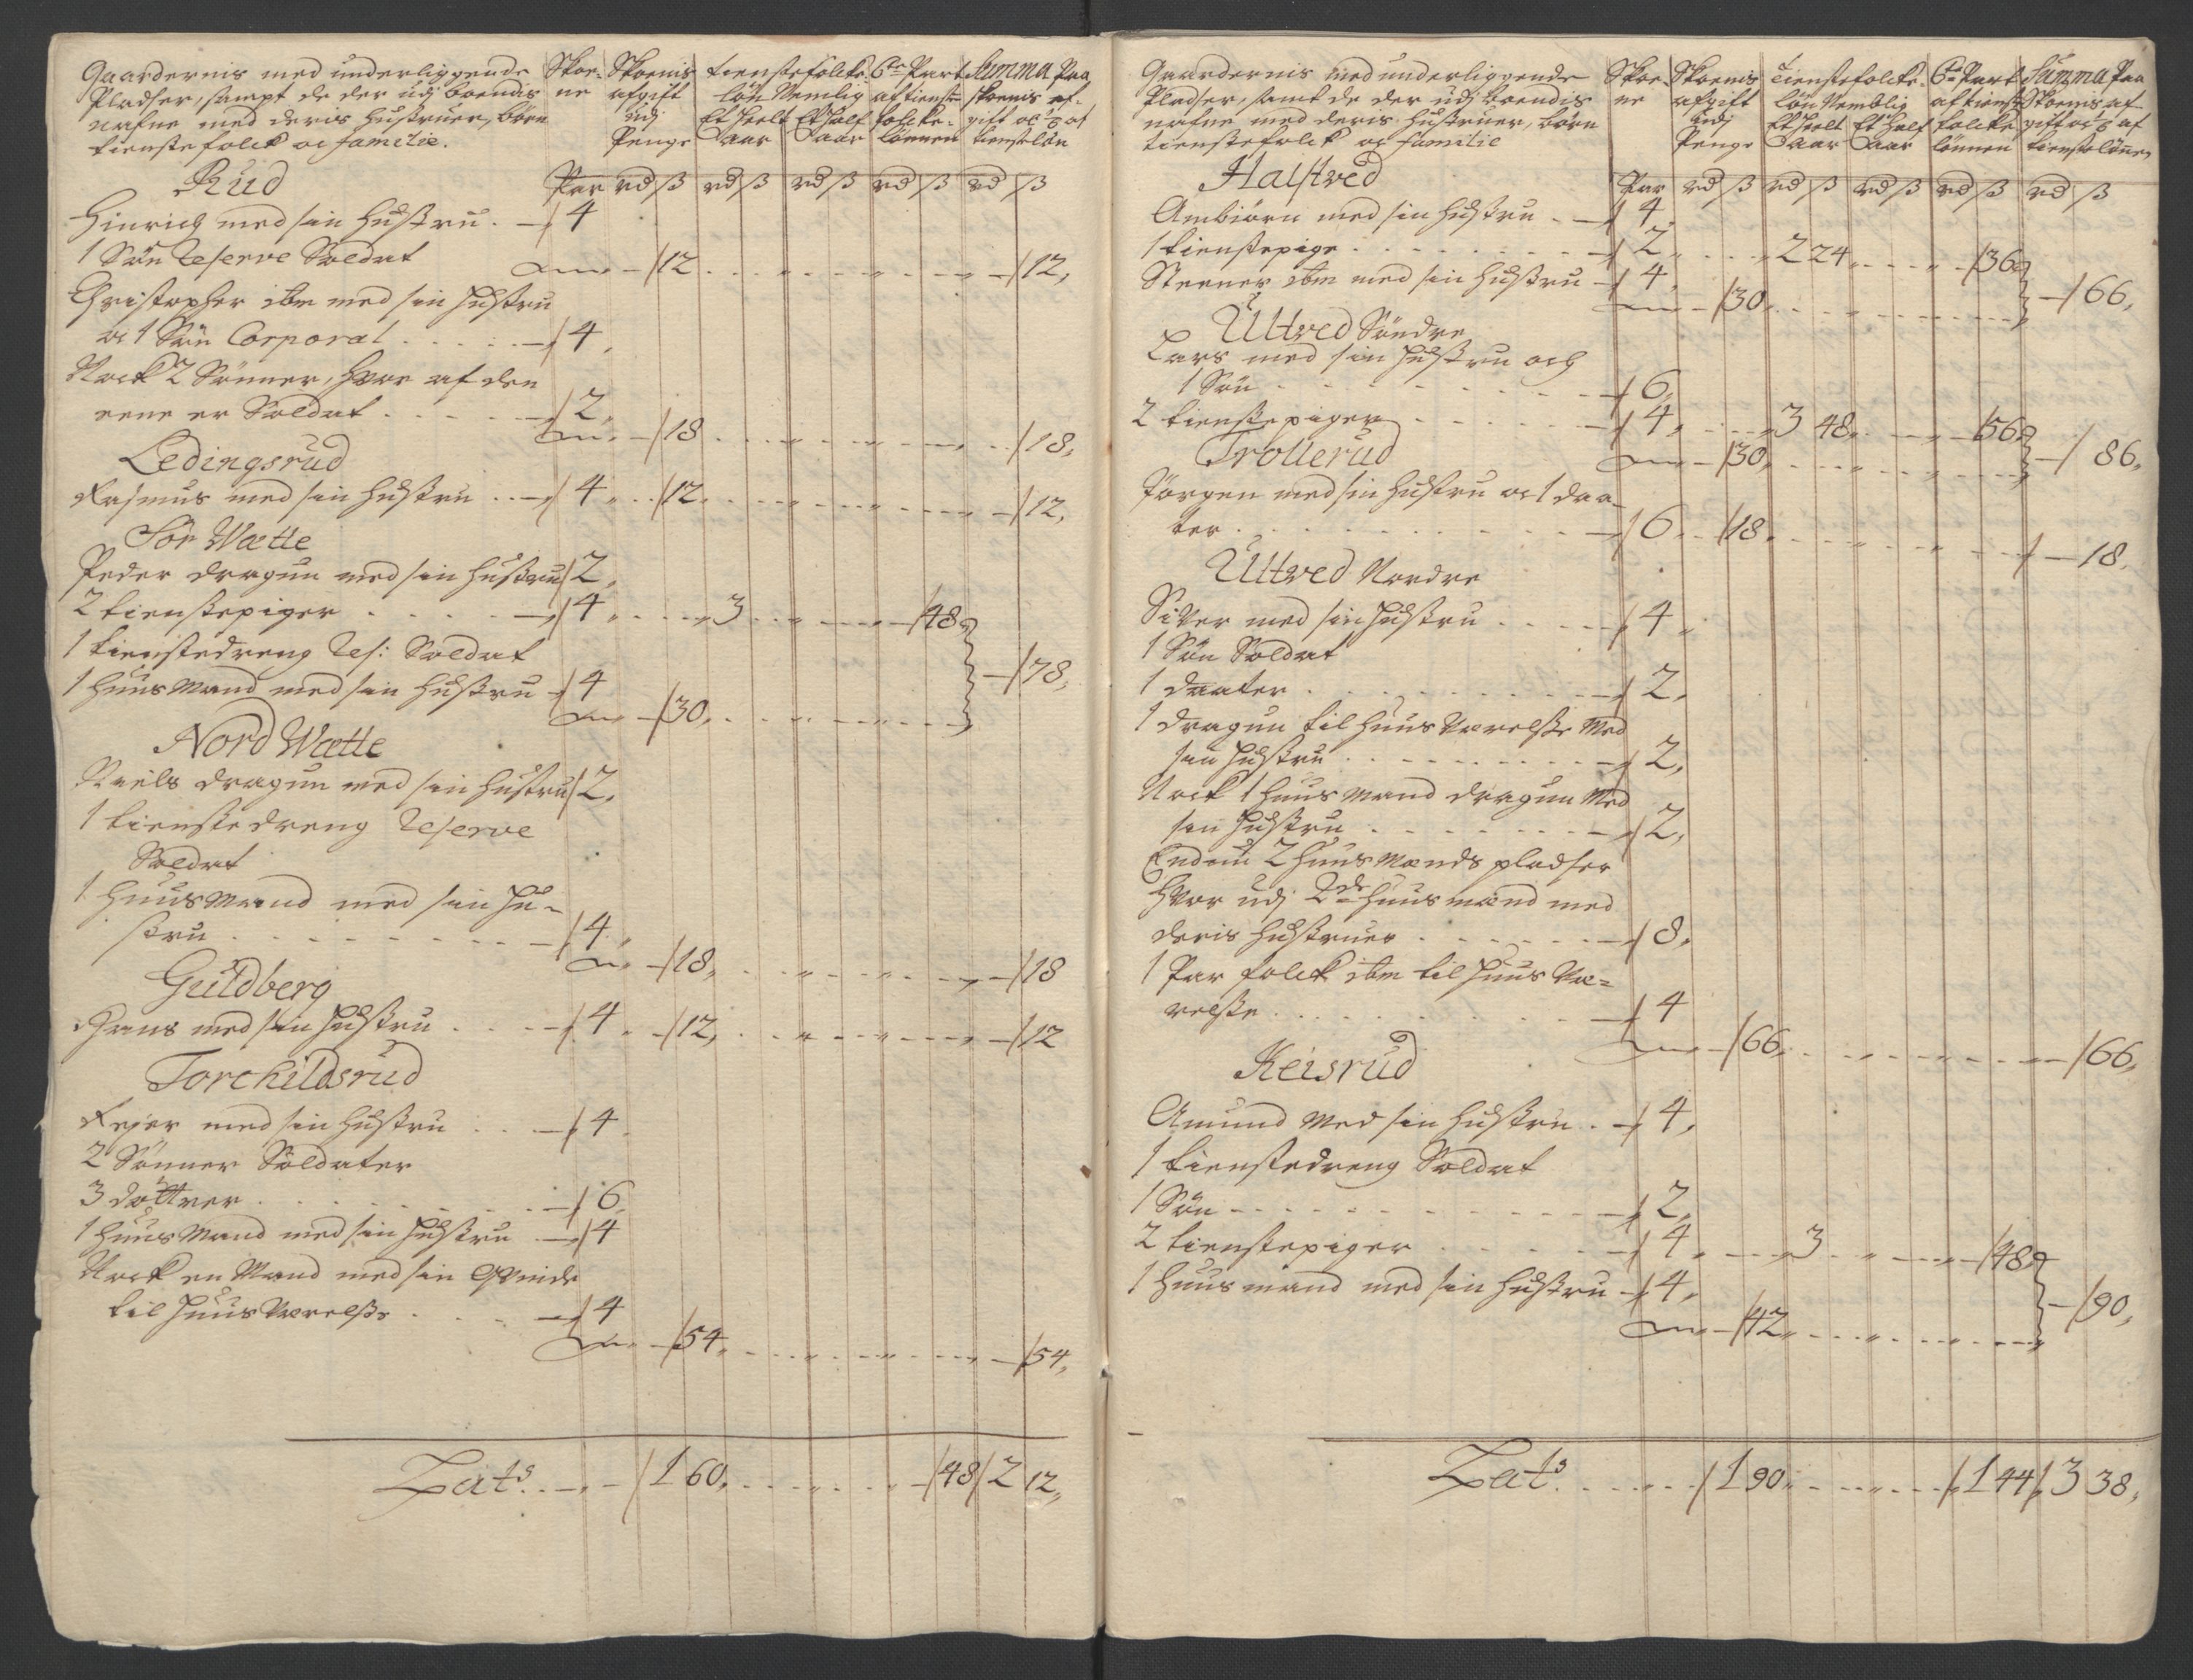 Gaardernis med underliggende
Pladser, sampt de der udj boendis
nafne med deris Hustruer, børn
tienstefolck oc familie.
Skoe-
ne
Skoenis
afgift
udj
Penge
tienstefolcks
løn Nemlig
Et Heelt Et Half
Aar Aar
6te Part
af tienste
folcke-
lønnen
Summa Paa
skoenis af-
gift oc 1/6 af
tienstløn
Par rd ß rd ß rd ß rd ß rd ß
Rud
Hinrich med sin Hustru . — 4
1 Søn Reserve Soldat — 12 — 12,
Christopher ibm med sin Hustru
oc 1 Søn Corporal . . . . — 4,
Nock 2 Sønner, hvor af den
eene er Soldat . . . . — 2,
— 18 — 18,
Ledingsrud
Rasmus med sin Hustru . . — 4 . . 12 — 12,
Sør Wætte
Peder dragun med sin Hustru 2,
2 tienstepiger . . . . — 4 . . . 3 — 48
1 tienistedreng Res: Soldat
1 Huusmand med sin Hustru — 4 — 78,
— 30,
Nord Wætte
Niels dragun med sin Hustru 2,
1 tienstedreng Reserve
Soldat
1 Huusmand med sin Hu-
stru . . . . . . — 4,
— 18, — 18
Guldberg
Hans med sin Hustru . . . — 4 . — 12, — 12
Torchildsrud
Rejer med sin Hustru . . . — 4
2 Sønner Soldater
3 døttrer . . . . . — 6,
1 Huusmand med sin Hustru — 4
Nock en Mand med sin Qvinde
til Huus Værelße . . . — 4
— 54, — 54,
Lats. . — 1 60, — 48 2 12,
Gaardernis med underliggende
Pladser, samt de der udj boendis
nafne med deris Hustruer, børn
tienstefolck oc familie
Skoe-
ne
Skoenis
afgift
udj
Penge
Tienstefolcks
løn Nemblig
Et Heelt Et Half
Aar Aar
6te Part
af tienste
folcke
lønnen
Summa Paa
Skoenis af-
gift oc 1/6 af
tienstelønnen
Par rd ß rd ß rd ß rd ß rd ß
Halstved
Ambiørn med sin Hustru . — 4,
1 tienstepige . . . . . — 2, . . . 2 24 . . . 36
Steener ibm med sin Hustru — 4, — 66,
— 30,
Ultved Søndre
Lars med sin Hustru och
1 Søn . . . . . . — 6,
2 tienstepiger . . . . . — 4, . . 3 48 . . — 56
— 30, — 86,
Trollerud
Jørgen med sin Hustru oc 1 daa-
ter . . . . . . — 6 . . 18, — 18,
Ultved Nordre
Siver med sin Hustru . . . — 4,
1 Søn Soldat
1 daater . . . . . — 2,
1 dragun til Huus Værelße Med
sin Hustru . . . . . — 2,
Nock 1 Huusmand dragun Med
sin Hustru . . . . . — 2,
Endnu 2 Huusmænds pladser
Hvor udj 2de Huusmænd med
deris Hustruer . . . . . — 8,
1 Par folck ibm til Huus Væ-
relße . . . . . . — 4
— 66, — 66,
Keisrud
Amund Med sin Hustru . — 4,
1 tienstedreng Soldat
1 Søn . . . . . . — 2,
2 tienstepiger . . . . — 4, . . . 3 — 48
1 Huusmand med sin Hustru — 4, — 90,
— 42,
Lats . . . 1 90, — 1 44 3 38,